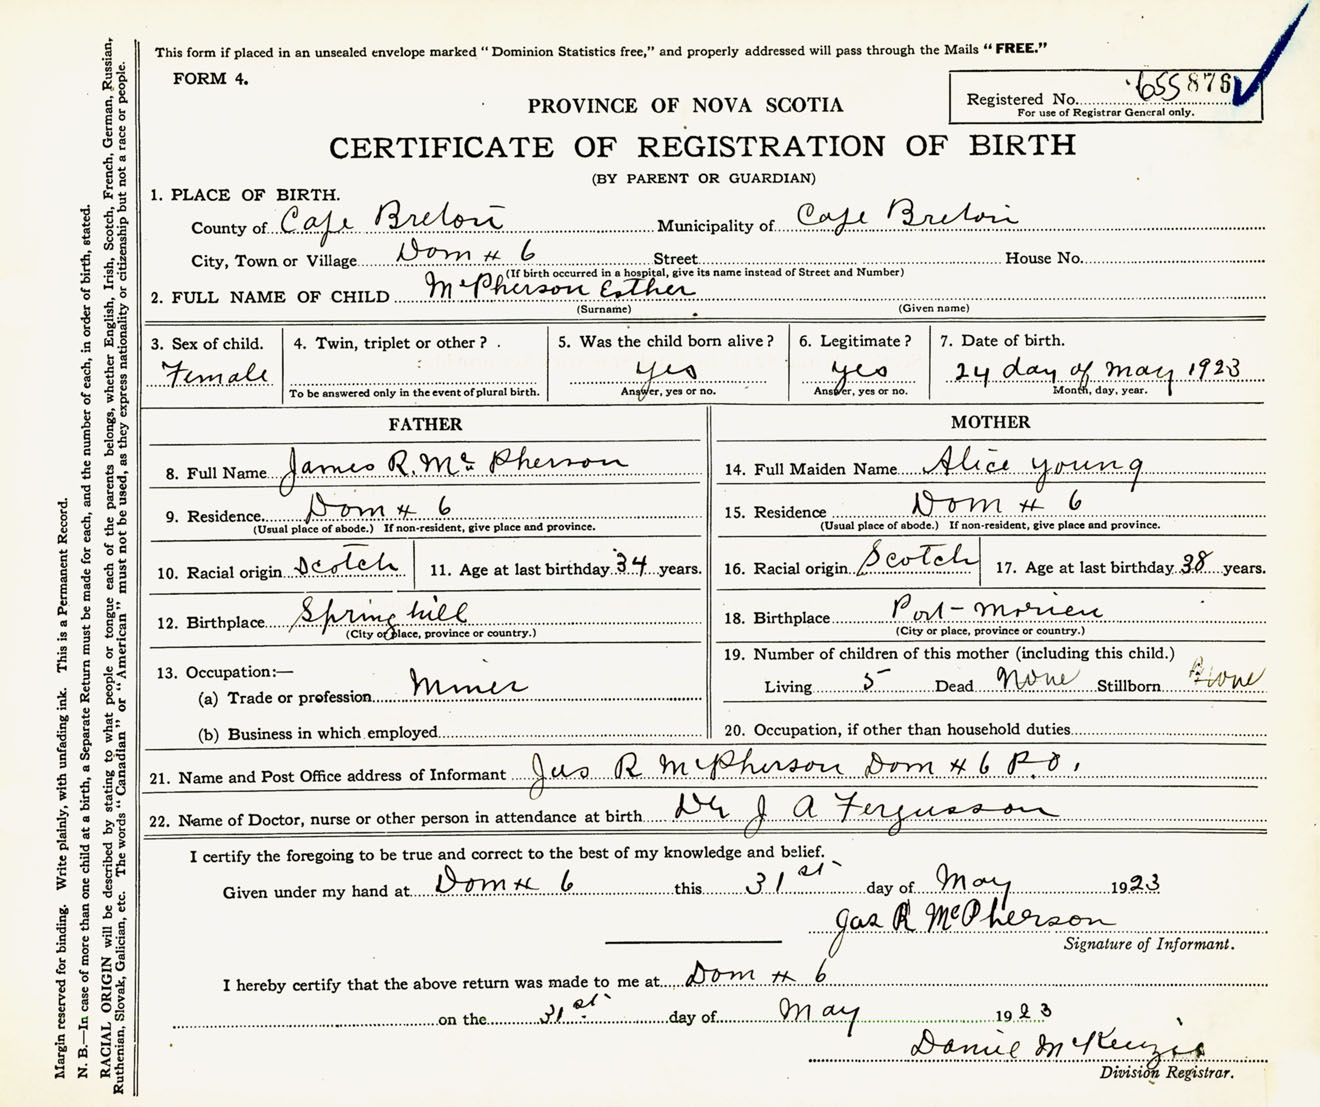 This form if placed in an unsealed envelope marked "Dominion Statistics free," and properly addressed will pass through the Mails "FREE."
FORM 4.
Registered No. 655876
For use of Registrar General only.
PROVINCE OF NOVA SCOTIA
CERTIFICATE OF REGISTRATION OF BIRTH
(BY PARENT OR GUARDIAN)
1. PLACE OF BIRTH.
County of Cape Breton Municipality of Cape Breton
City, Town or Village Dom # 6 Street House No.
(If birth occurred in a hospital, give its name instead of Street and Number)
2. FULL NAME OF CHILD McPherson Esther
(Surname) (Given name)
3. Sex of child. 4. Twin, triplet or other? 5. Was the child born alive? 6. Legitimate? 7. Date of birth.
Female yes yes 24 day of May 1923
To be answered only in the event of plural birth. Answer, yes or no. Answer, yes or no. Month, day, year.
FATHER
8. Full Name James R. McPherson
9. Residence. Dom # 6
(Usual place of abode.) If non-resident, give place and province.
10. Racial origin Scotch 11. Age at last birthday 34 years.
12. Birthplace Spring hill
(City or place, province or country.)
13. Occupation:—
(a) Trade or profession Miner
(b) Business in which employed
MOTHER
14. Full Maiden Name Alice Young
15. Residence Dom # 6
(Usual place of abode.) If non-resident, give place and province.
16. Racial origin Scotch 17. Age at last birthday 38 years.
18. Birthplace Port-Morien
(City or place, province or country.)
19. Number of children of this mother (including this child.)
Living 5 Dead None Stillborn None
20. Occupation, if other than household duties
21. Name and Post Office address of Informant Jas R McPherson Dom # 6 P.O.
22. Name of Doctor, nurse or other person in attendance at birth Dr J A Fergusson
I certify the foregoing to be true and correct to the best of my knowledge and belief.
Given under my hand at Dom # 6 this 31st day of May 1923
Jas R McPherson
Signature of Informant.
I hereby certify that the above return was made to me at Dom # 6
on the 31st day of May 1923
Daniel McKenzie
Division Registrar.
Margin reserved for binding. Write plainly, with unfading ink. This is a Permanent Record.
N. B.—In case of more than one child at a birth, a Separate Return must be made for each, and the number of each, in order of birth, stated.
RACIAL ORIGIN will be described by stating to what people or tongue each of the parents belongs, whether English, Irish, Scotch, French, German, Russian,
Ruthenian, Slovak, Galician, etc. The words "Canadian" or "American" must not be used, as they express nationality or citizenship but not a race or people.